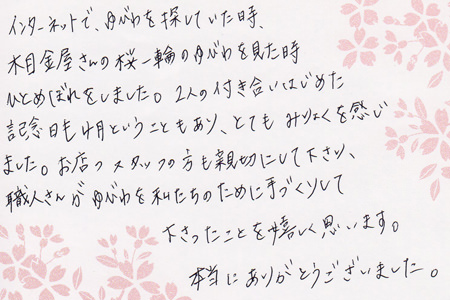 インターネットで、ゆびわを探していた時、
木目金屋さんの桜一輪のゆびわを見た時
ひとめぼれをしました。2人の付き合いはじめた
記念日も4月ということもあり、とても みりょくを感じ
ました。お店の スタッフの方も親切にして下さり、
職人さんが ゆびわを私たちのために手づくりして
下さったことを嬉しく思います。
本当にありがとうございました。